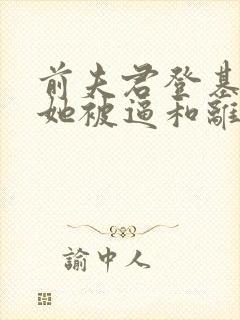 前夫君登基
她被逼和離
諭中人